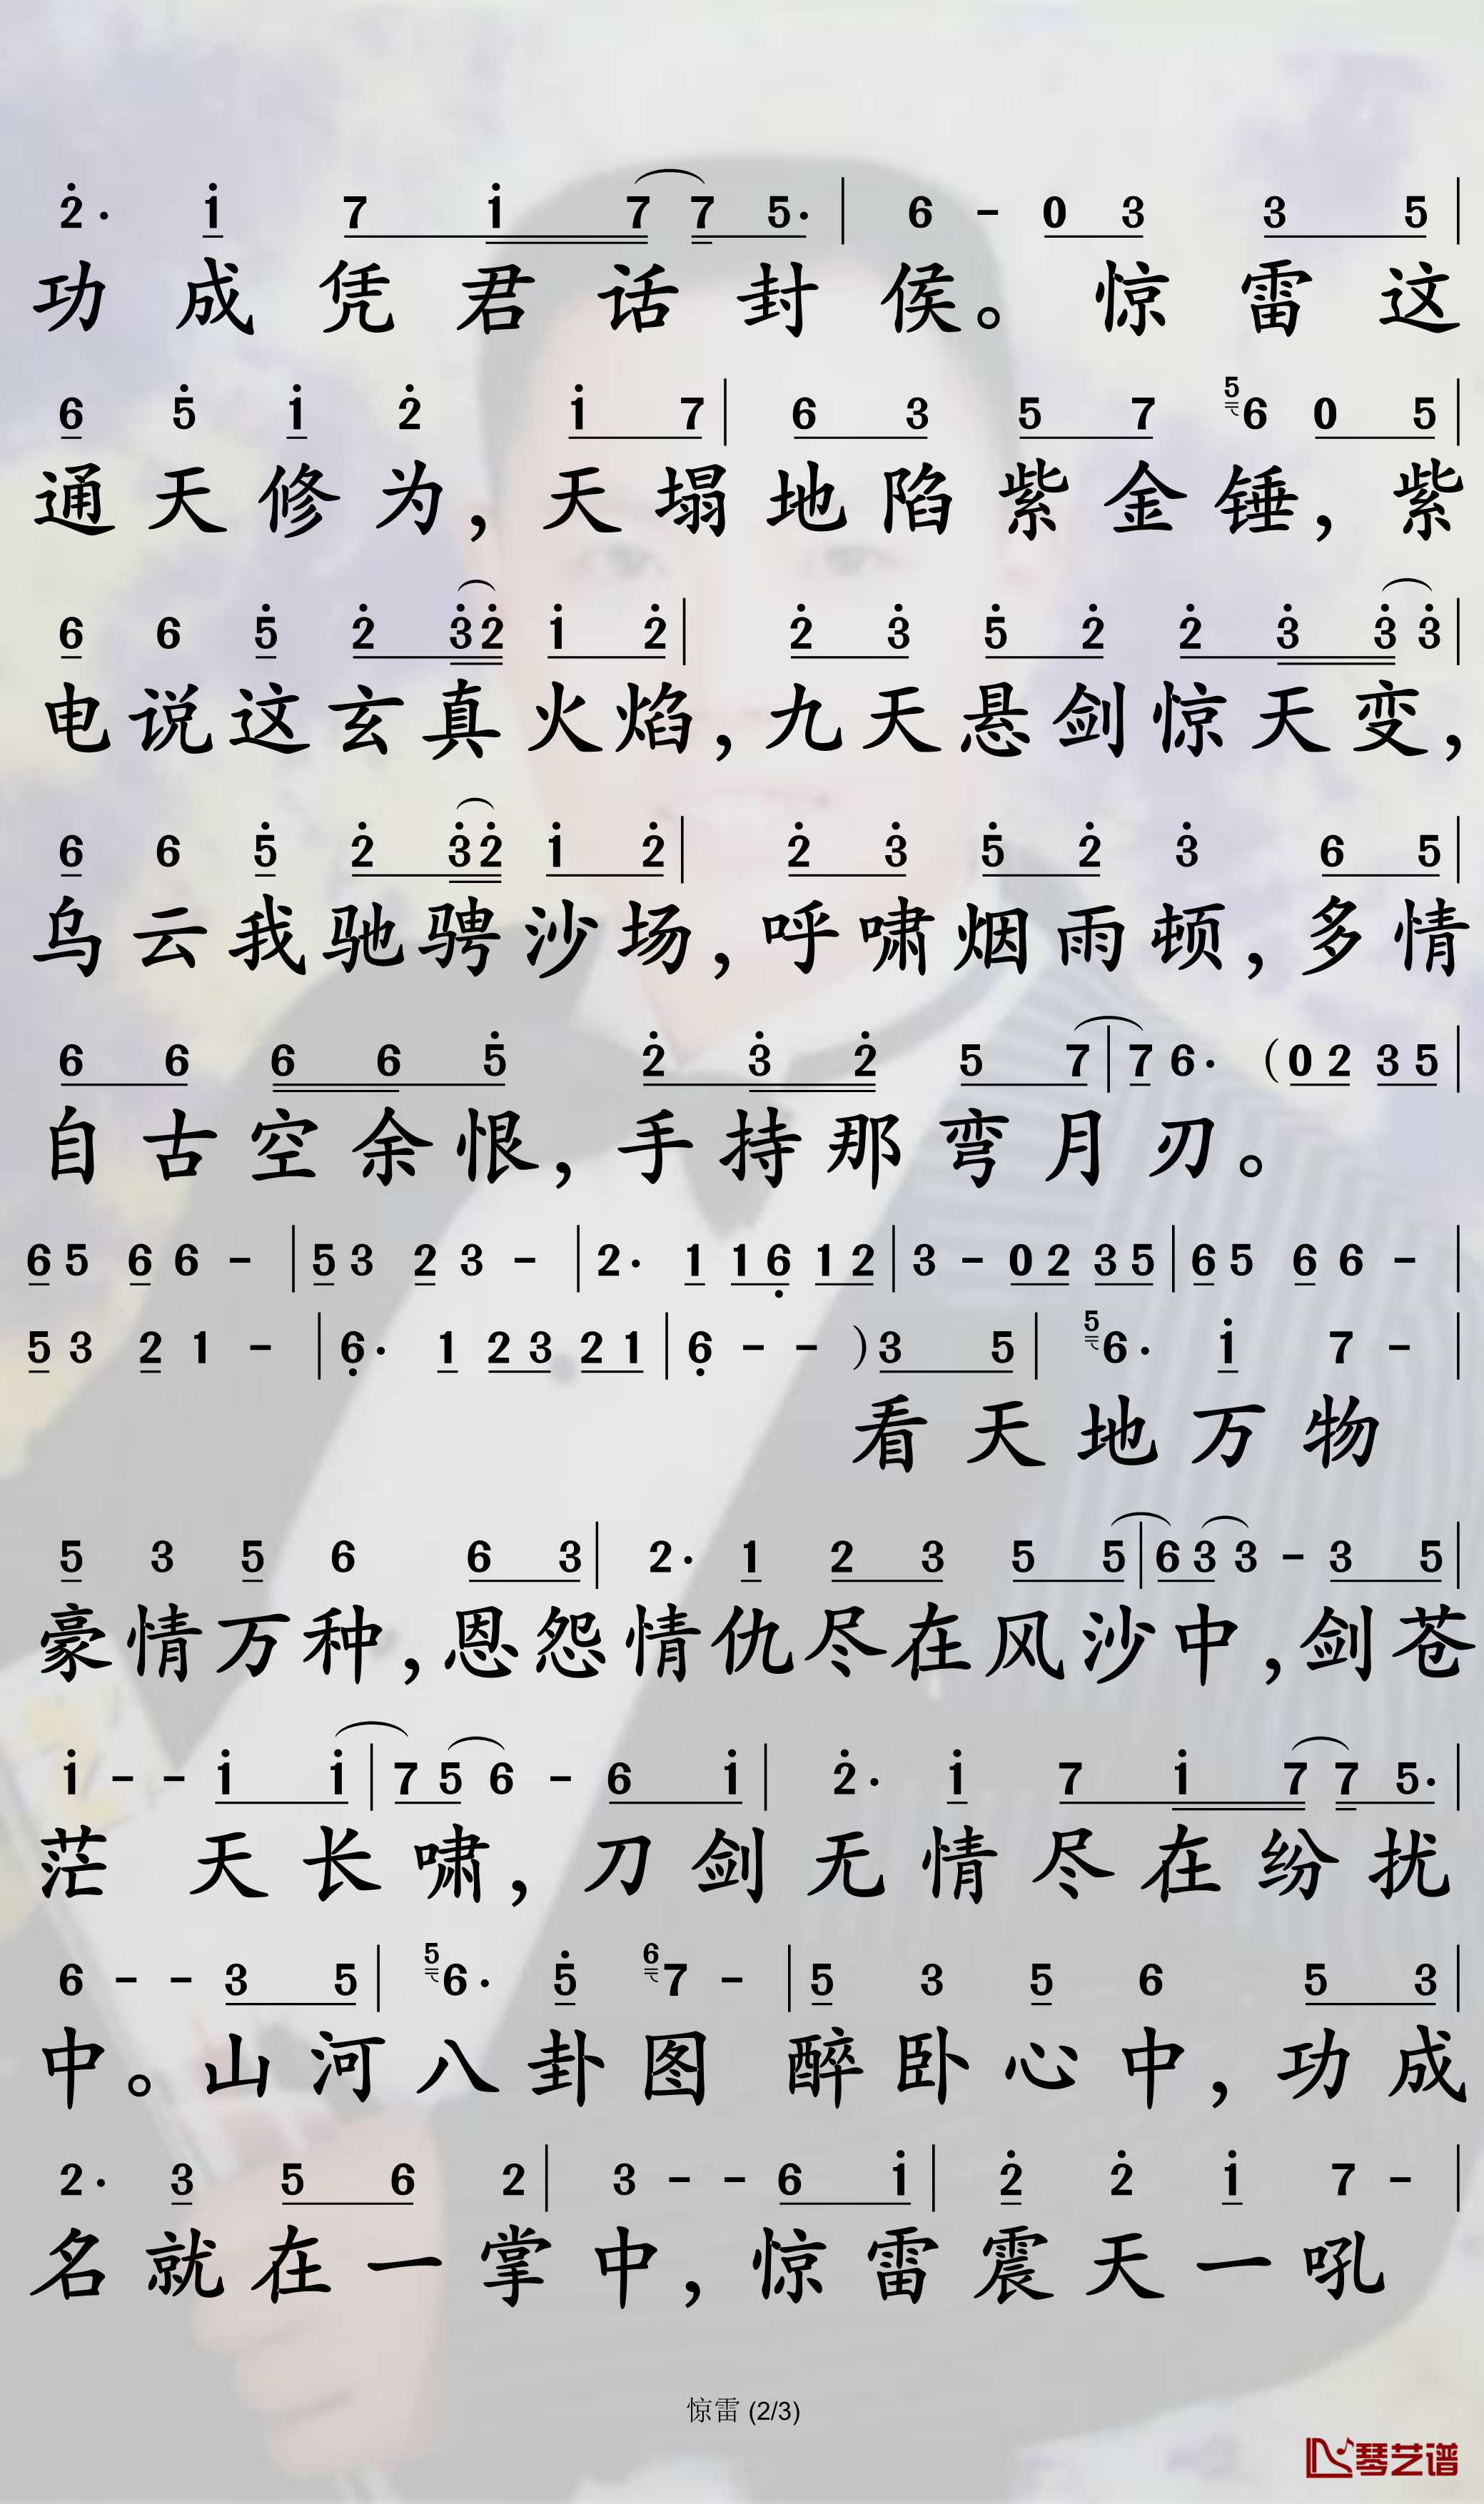 2̇· 1̇ 7 1̇ 7 7 5· | 6 - 0 3 3 5 |
功成凭君话封侯。惊雷这
6 5̇ 1̇ 2̇ 1̇ 7 | 6 3 5 7 5 6 0 5 |
通天修为，天塌地陷紫金锤，紫
6 6 5̇ 2̇ 3̇ 2̇ 1̇ 2̇ | 2̇ 3̇ 5̇ 2̇ 2̇ 3̇ 3̇ 3̇ |
电说这玄真火焰，九天悬剑惊天变，
6 6 5̇ 2̇ 3̇ 2̇ 1̇ 2̇ | 2̇ 3̇ 5̇ 2̇ 3̇ 6 5 |
乌云我驰骋沙场，呼啸烟雨顿，多情
6 6 6 6 5̇ 2̇ 3̇ 2̇ 5 7 | 7 6· (0 2 3 5 |
自古空余恨，手持那弯月刃。
6 5 6 6 - | 5 3 2 3 - | 2· 1 1 6̣ 1 2 | 3 - 0 2 3 5 | 6 5 6 6 - |
5 3 2 1 - | 6̣· 1 2 3 2 1 | 6̣ - - ) 3 5 | 5 6· 1̇ 7 - |
看天地万物
5 3 5 6 6 3 | 2· 1 2 3 5 5 | 6 3 3 - 3 5 |
豪情万种，恩怨情仇尽在风沙中，剑苍
1̇ - - 1̇ 1̇ | 7 5 6 - 6 1̇ | 2̇· 1̇ 7 1̇ 7 7 5· |
茫天长啸，刀剑无情尽在纷扰
6 - - 3 5 | 5 6· 5̇ 6 7 - | 5 3 5 6 5 3 |
中。山河八卦图醉卧心中，功成
2· 3 5 6 2 | 3 - - 6 1̇ | 2̇ 2̇ 1̇ 7 - |
名就在一掌中，惊雷震天一吼
惊雷 (2/3)
琴艺谱